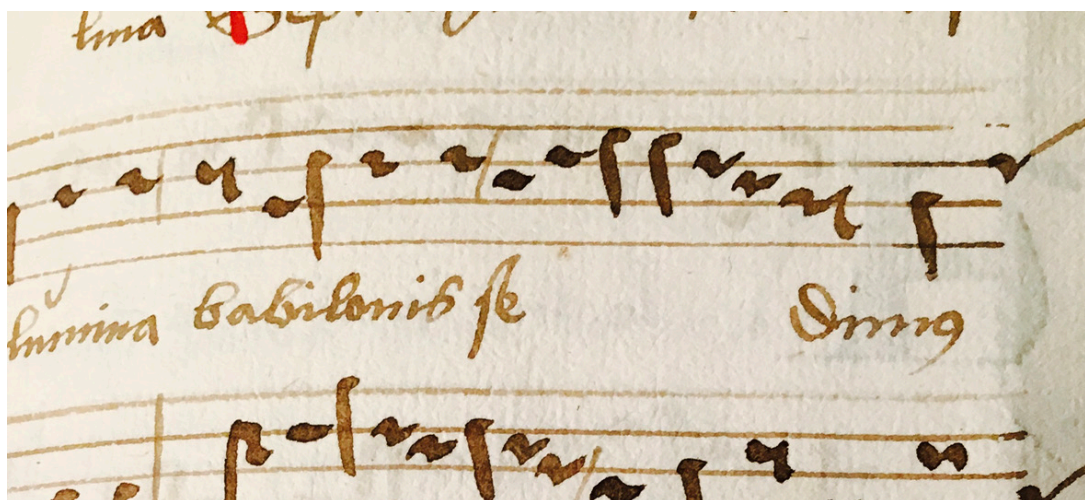 lina
lumina babilonis se dimus